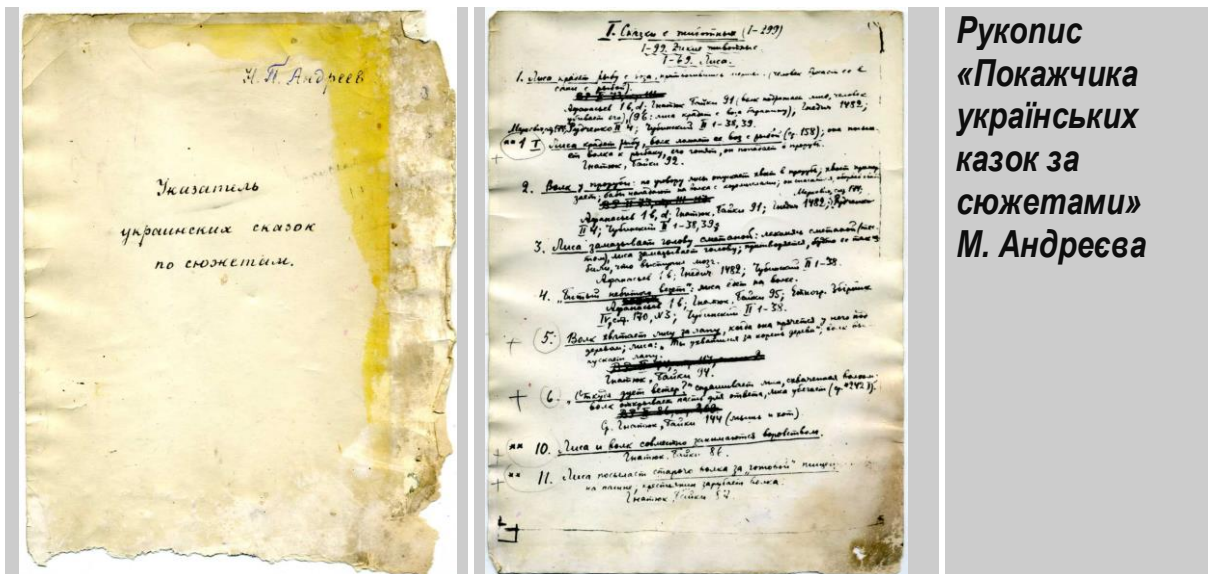 Н. П. Андреев
Указатель
украинских сказок
по сюжетам.
I. Сказки о животных (1-299)
1-99. Дикие животные.
1-69. Лиса.
1. Лиса крадет рыбу с воза, притворившись (человек бросает ее в
сани с рыбой).
Афанасьев 1 b, d; Гнатюк Байки 91 (волк
убивает его), (96: лиса крадет с воза); Гнедич 1482;
Рудченко II 4; Чубинский II 1-38, 39.
**1 I Лиса крадет рыбу, волк (ср. 158); она
волка к рыбаку, его он попадает в прорубь.
Гнатюк, Байки 92.
2. Волк у проруби: по уговору лисы опускает хвост в прорубь; хвост
Афанасьев 1 b, d; Гнатюк, Байки 91; Гнедич 1482; Рудченко
II 4; Чубинский II 1-38, 39;
3. Лиса замазывает голову сметаной:
лиса замазывает голову; притворяется, будто ее так
били, что выступил мозг.
Афанасьев 1 b; Гнедич 1482; Чубинский II 1-38.
4. "Битый небитого везет": лиса едет на волке.
Афанасьев 1 b; Гнатюк, Байки 95; Етногр. Збірник
IV, стр. 170, №3; Чубинский II 1-38.
5. Волк хватает лису за лапу, когда она прячется у него под
деревом; лиса: "Ты ухватился за корень дерева"; волк вы-
пускает лапу.
Гнатюк, Байки 94.
6. "Откуда дует ветер?" спрашивает лиса, схваченная волком:
волк открывает пасть для ответа, лиса убегает (ср. *242 I).
Ср. Гнатюк, Байки 144 (мышь и кот).
** 10. Лиса и волк совместно занимаются воровством.
Гнатюк, Байки 86.
** 11. Лиса посылает старого волка за "готовой" пищей
на пашне, крестьянин зарубает волка.
Гнатюк, Байки 87.
Рукопис
«Покажчика
українських
казок за
сюжетами»
М. Андреєва